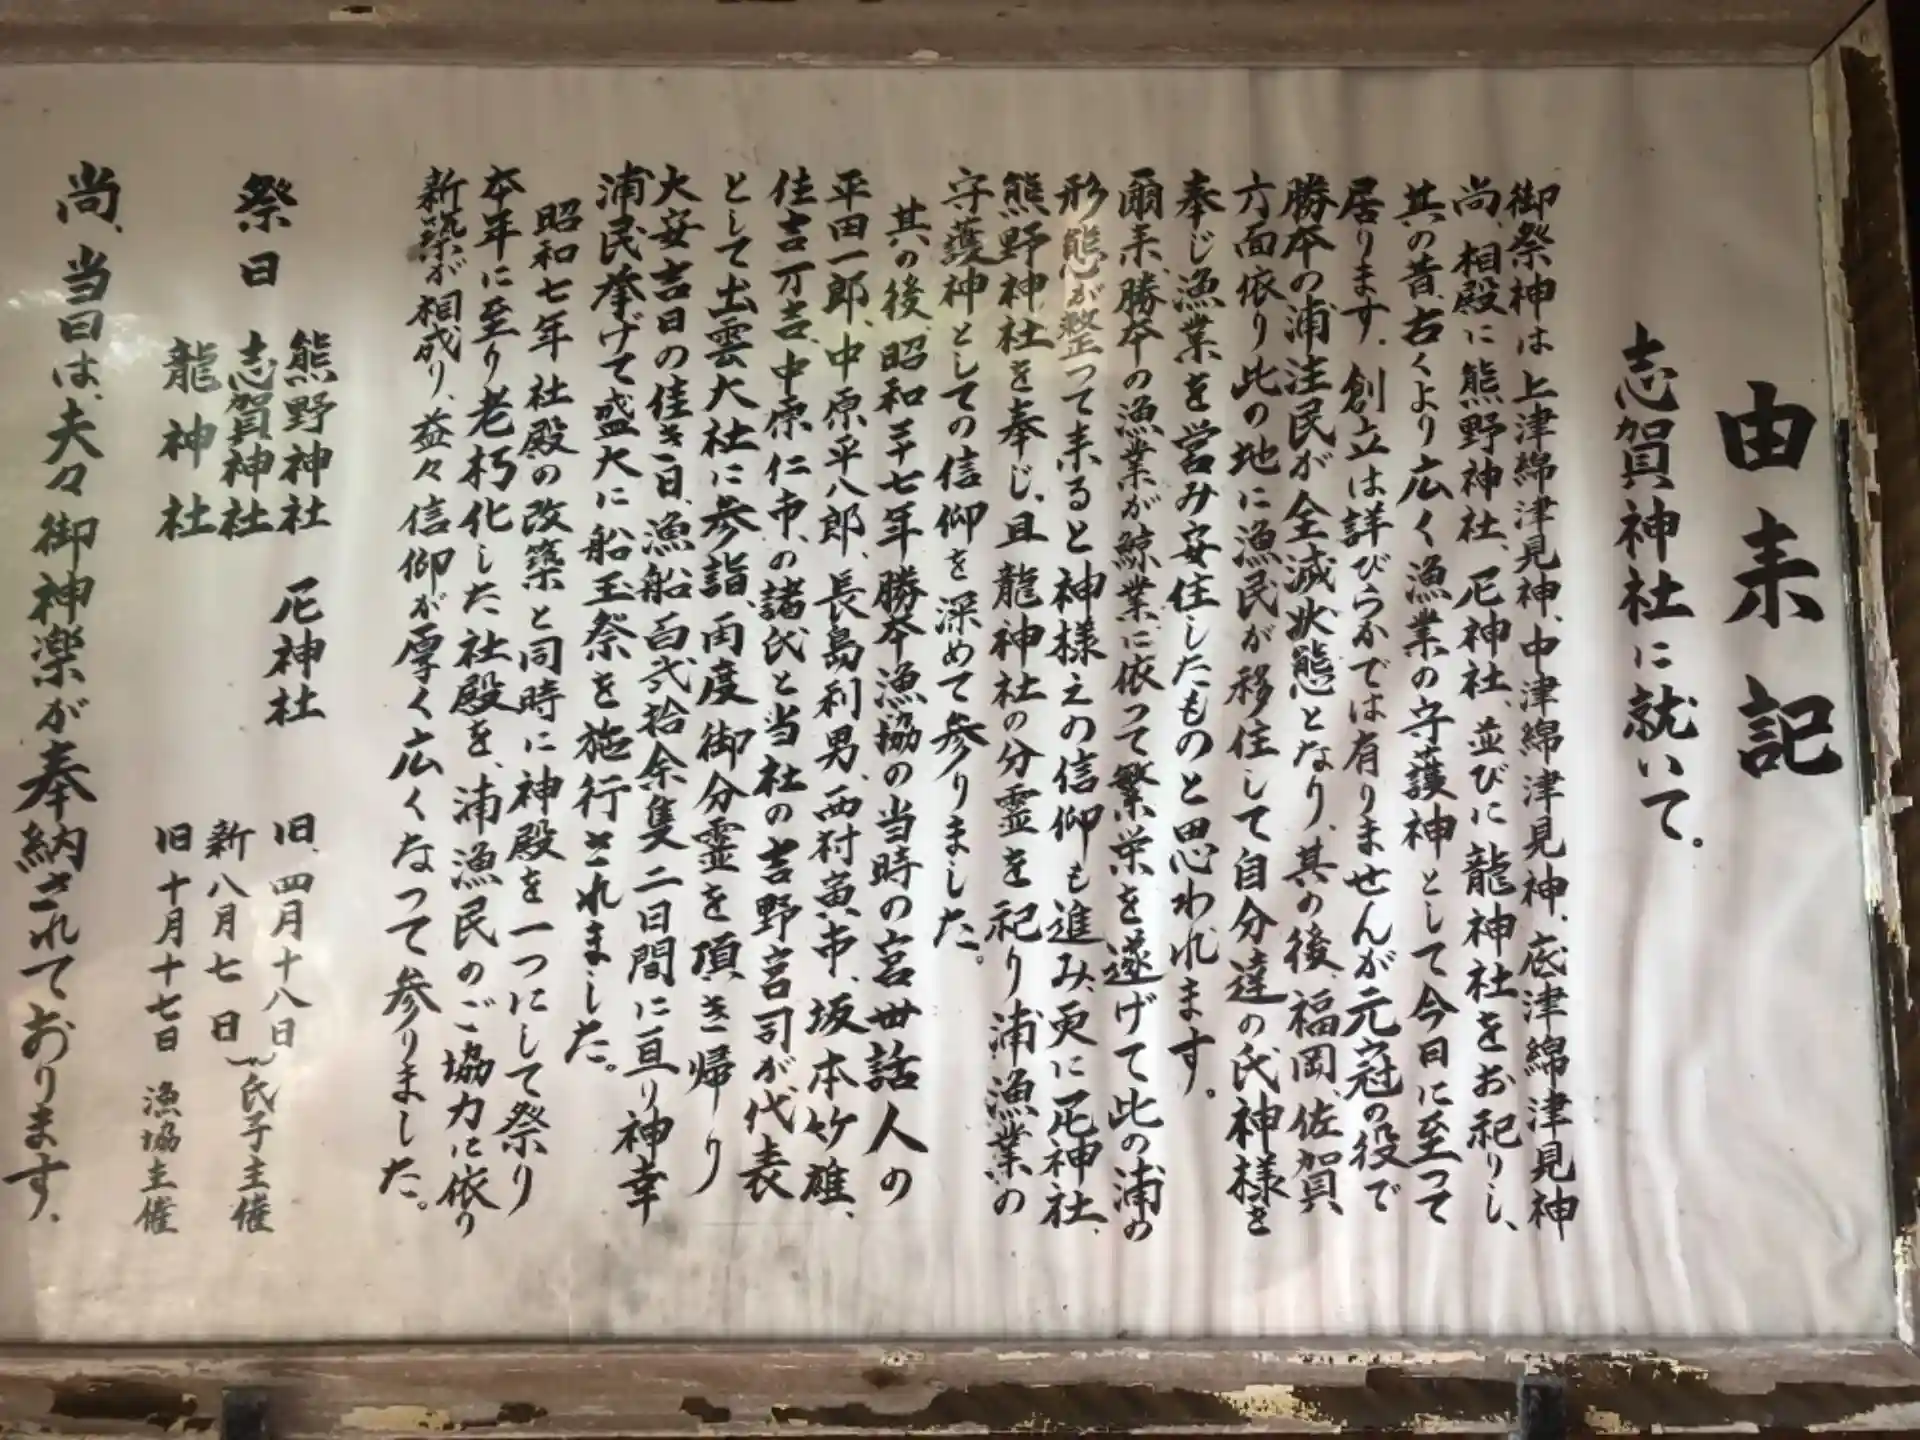 由来記
志賀神社に就いて。
御祭神は上津綿津見神、中津綿津見神、底津綿津見神
尚、相殿に熊野神社、戹神社、並びに龍神社をお祀りし、
其の昔、古くより広く漁業の守護神として今日に至って
居ります。創立は詳びらかでは有りませんが元冠の役で
勝本の浦注民が全滅状態となり、其の後、福岡、佐賀、
方面依り此の地に漁民が移住して自分達の氏神様を
奉じ漁業を営み安住したものと思われます。
爾来、勝本の漁業が鯨業に依って繁栄を遂げて此の浦の
形態が整って来ると神様えの信仰も進み、更に戹神社、
熊野神社を奉じ、且龍神社の分霊を祀り浦漁業の
守護神としての信仰を深めて参りました。
其の後、昭和三十七年勝本漁協の当時の宮世話人の
平田一郎、中原平八郎、長島利男、西村寅市、坂本竹雄、
住吉万吉、中原仁市、の諸氏と当社の吉野宮司が代表
として出雲大社に参詣、両度御分霊を頂き帰り
大安吉日の佳き日、漁船百弐拾余隻二日間に亘り神幸
浦民挙げて盛大に船玉祭を施行されました。
昭和七年社殿の改築と同時に神殿を一つにして祭り
本年に至り老朽化した社殿を、浦漁民のご協力に依り
新築が相成り、益々信仰が厚く広くなって参りました。
祭日 熊野神社 戹神社 旧、四月十八日
志賀神社 新八月七日 氏子主催
龍神社 旧十月十七日 漁協主催
尚、当日は、夫々御神楽が奉納されております。